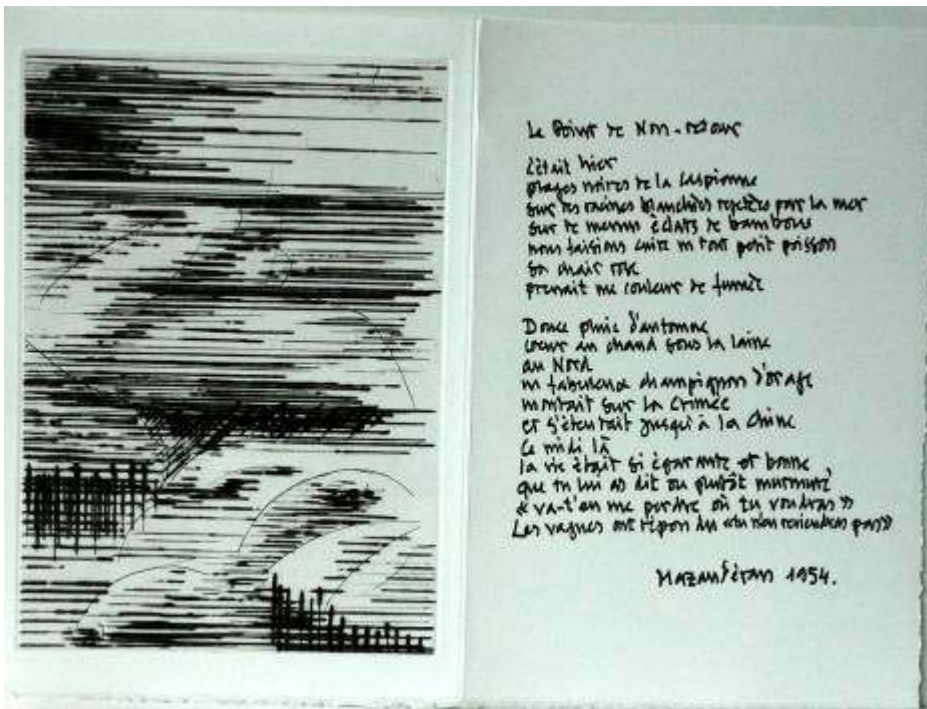 Le Point de Non-retour
C'était hier
plages noires de la Caspienne
sur des racines blanchies rejetées par la mer
sur de menus éclats de bambous
nous faisions cuire un tout petit poisson
sa chair rose
prenait une couleur de fumée
Douce pluie d'automne
coeur au chaud sous la laine
au Nord
un fabuleux champignon d'orage
montait sur la Crimée
et s'étendait jusqu'à la Chine
Ce midi là
la vie était si égarante et bonne
que tu lui as dit ou plutôt murmuré
« va-t'en me perdre où tu voudras »
Les vagues ont répondu « tu n'en reviendras pas »
Mazandéran 1954.